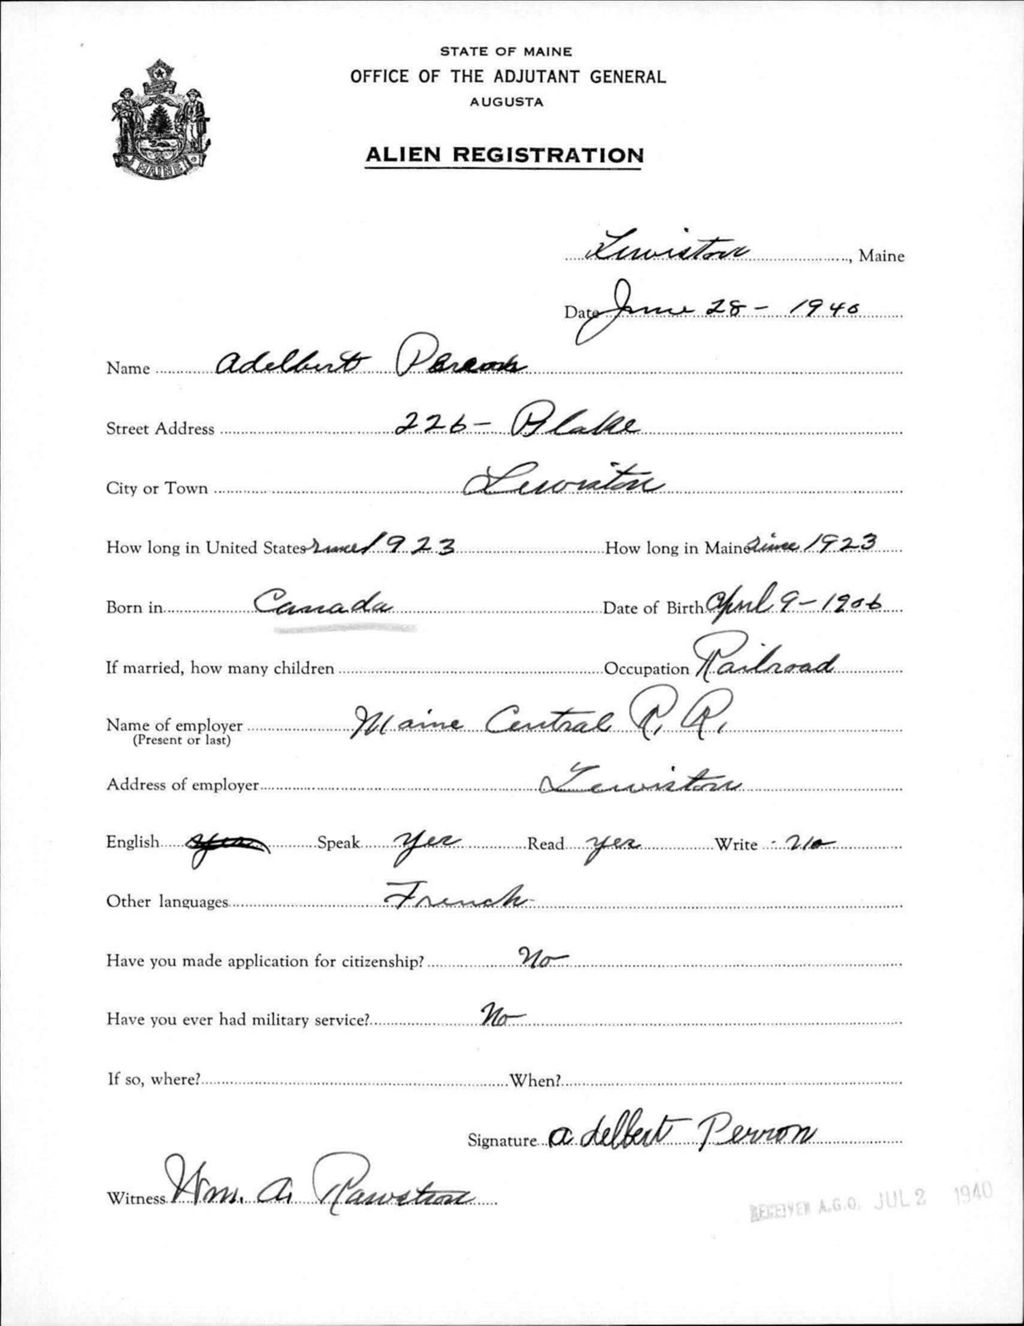 STATE OF MAINE
OFFICE OF THE ADJUTANT GENERAL
AUGUSTA
ALIEN REGISTRATION
MAINE
Lewiston, Maine
Date June 28 - 1940
Name Adelbert Perron
Street Address 226 - Blake
City or Town Lewiston
How long in United States since 1923 How long in Maine since 1923
Born in Canada Date of Birth April 9 - 1906
If married, how many children Occupation Railroad
Name of employer Maine Central R. R.
(Present or last)
Address of employer Lewiston
English Speak Yes Read Yes Write - No
Other languages French
Have you made application for citizenship? No
Have you ever had military service? No
If so, where? When?
Signature Adelbert Perron
Witness Wm. A. Rawstron
RECEIVED A.G.O. JUL 2 1940